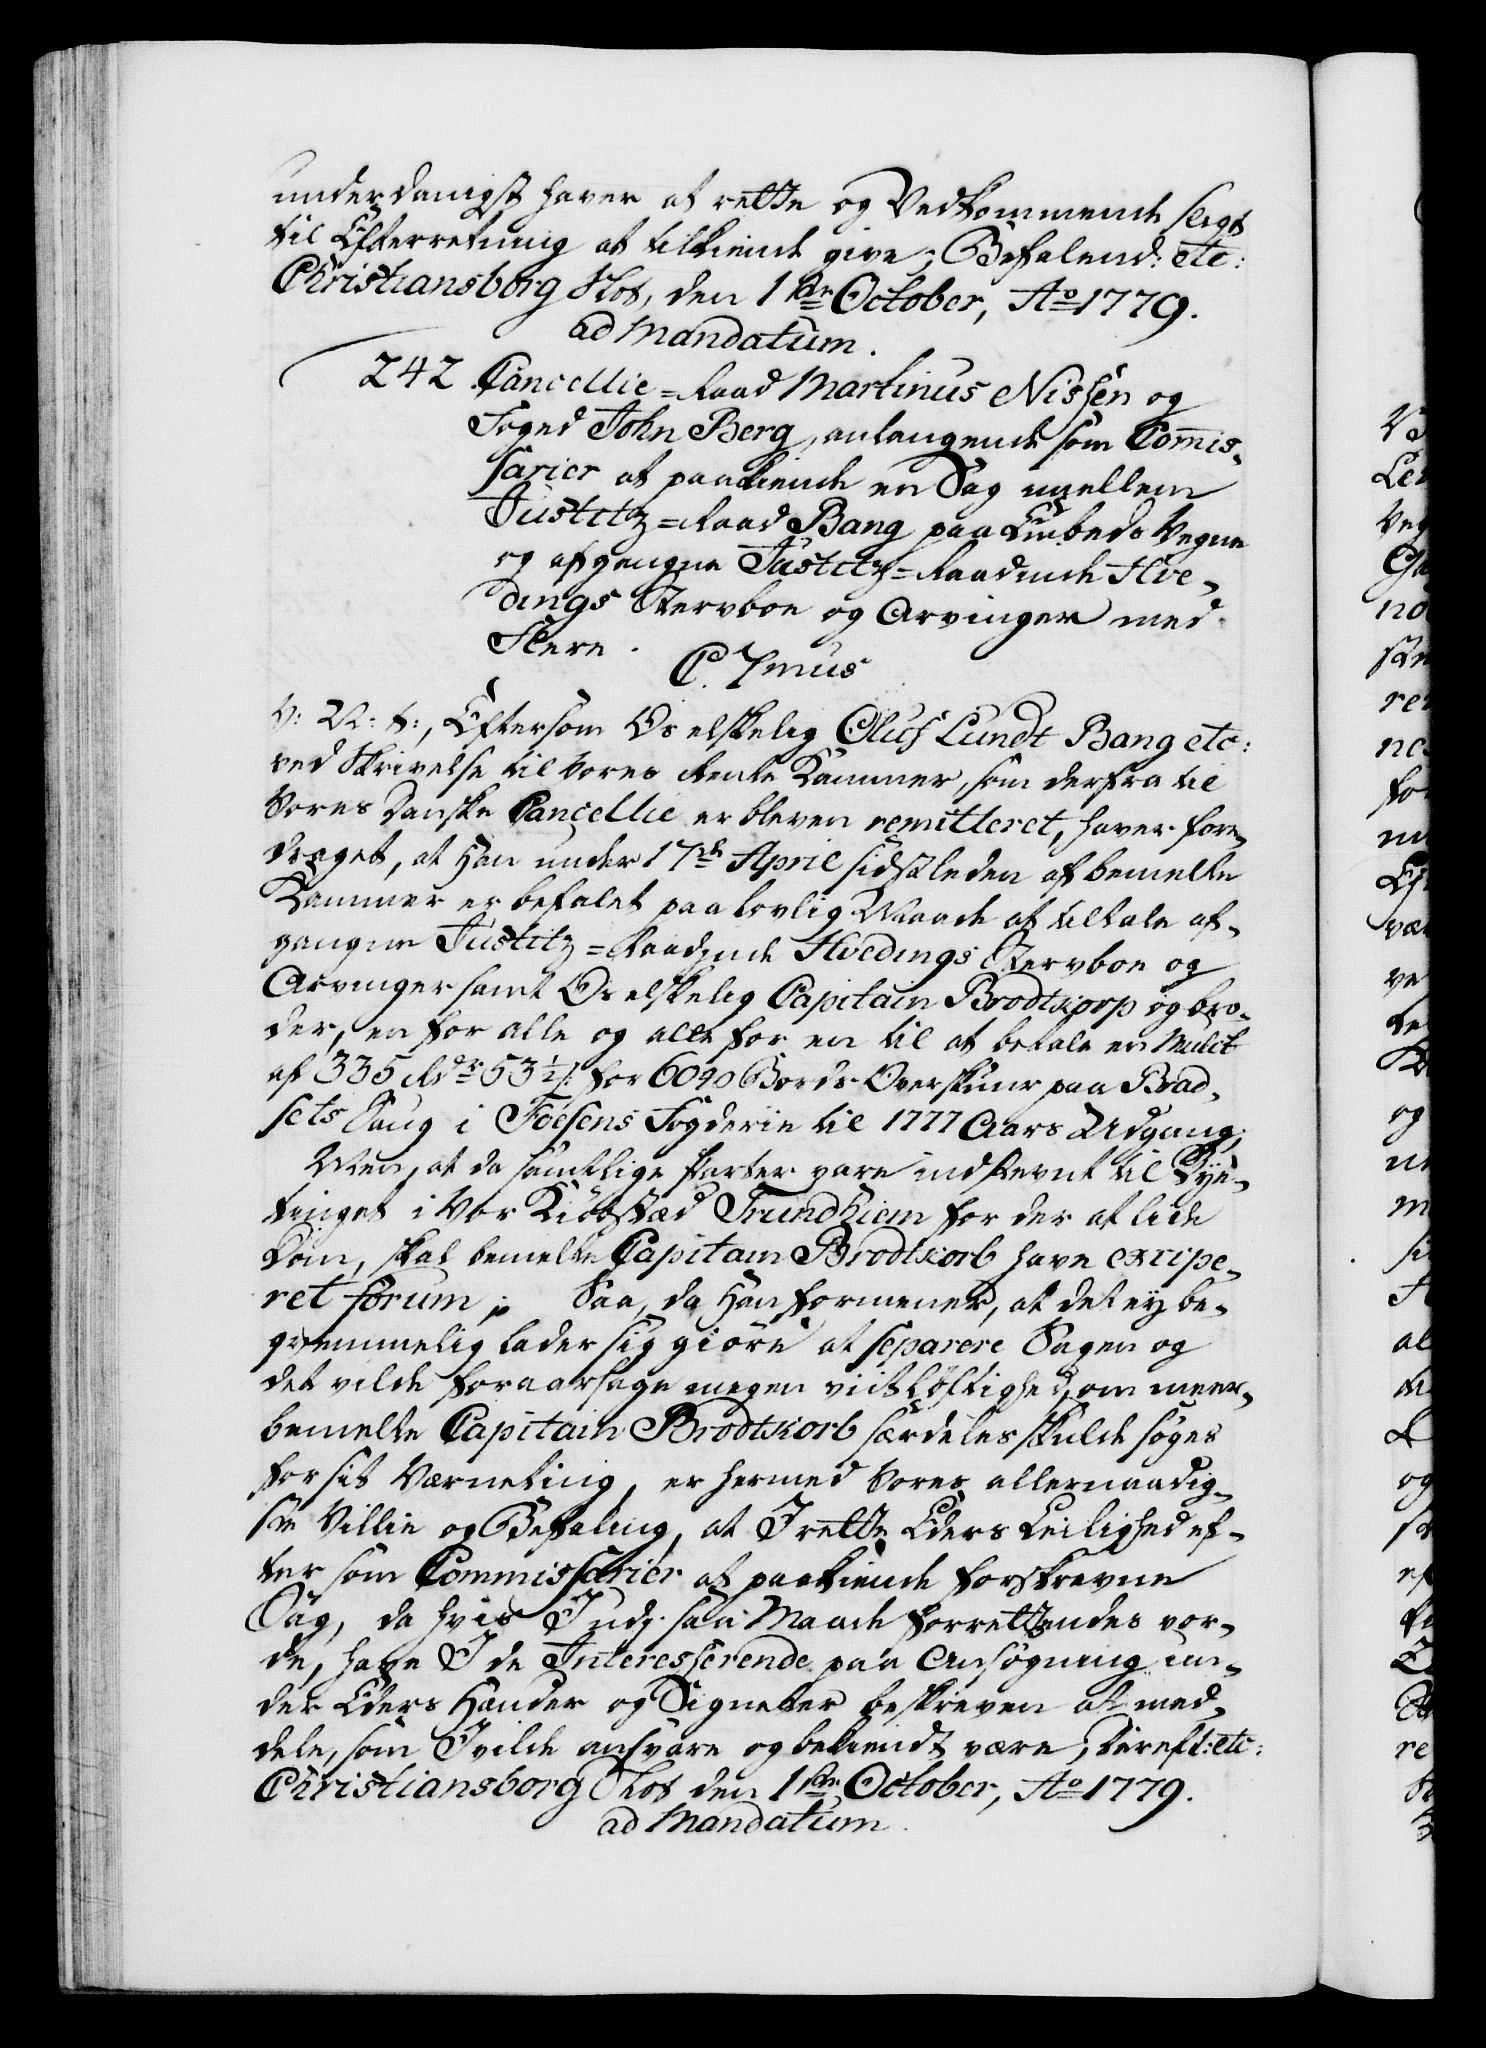 underdanigst haver at rette og Vedkommende sligt
til Efterretning at tilkiende give; Befalend: etc:
Christiansborg Slot, den 1ste October, Ao 1779.
ad Mandatum.
242 Cancellie-Raad Martinus Nissen og
Foged John Berg, anlangende som Commis-
sarier at paakiende en Sag mellem
Justitz-Raad Bang paa Embeds Vegne
og afgangne Justitz-Raadinde Hve-
dings Stervboe og Arvinger med
Flere.
C. 7mus
V: M: t:, Eftersom Os elskelig Oluf Lundt Bang etc:
ved Skrivelse til Vores Rente Kammer, som derfra til
Vores Danske Cancellie er bleven remitteret, haver fore-
draget, at Han under 17de April sidstleden af bemelte
Kammer er befalet paa lovlig Maade at tiltale af-
gangne Justitz-Raadinde Hvedings Stervboe og
Arvinger samt Os elskelig Capitain Brodtkorp og bro-
der, en for alle og alle for en til at betale en Mulct
af 335 Rdr 53 1/2 s: for 6090 Bords Overskiær paa Brad-
sets Saug i Foesens Fogderie til 1777 Aars Udgang;
Men, at da samtlige Parter vare indstevnt til Bye-
tinget i Vor Kiöbstæd Trundhiem for der at lide
Dom, skal bemelte Capitain Brodtkorb have excipe-
ret forum; Saa, da Han formener, at det ey be-
qvemmelig lader sig giöre at separere Sagen og
det vilde foraarsage megen viitløftighed, om meer-
bemelte Capitain Brodtkorb særdeles skulde søges
for sit Værneting, er hermed Vores allernaadig-
ste Villie og Befaling, at I rette Eders Leilighed ef-
ter som Commissarier at paakiende forskrevne
Sag, da hvis I udj saa Maade forrettendes vor-
de, have I de Interesserende paa Ansøgning un-
der Eders Hænder og Signeter beskreven at med-
dele, som I vilde ansvare og bekiendt være, Dereft: etc:
Christiansborg Slot den 1ste October, Ao 1779.
ad Mandatum.